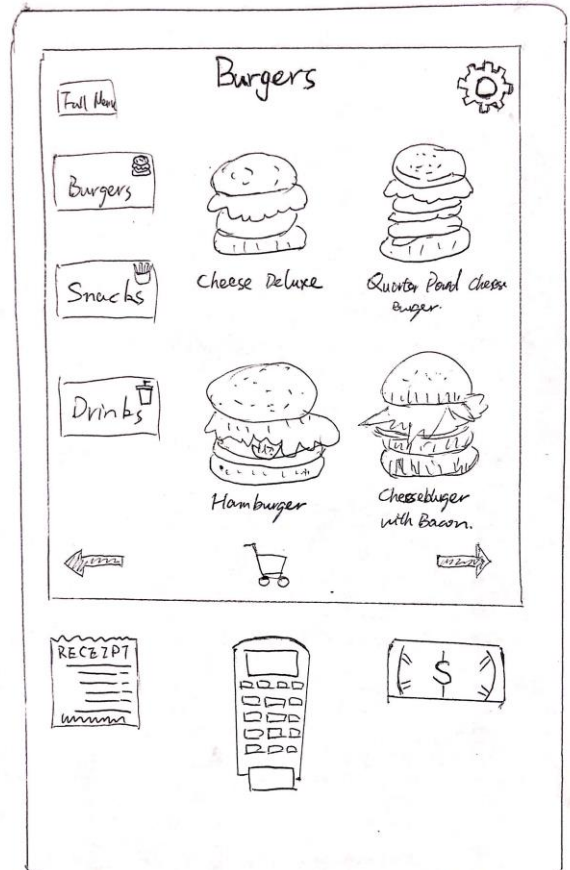 Burgers
Full Menu
Burgers
Snacks
Drinks
Cheese Deluxe
Quarter Pound Cheese
Burger.
Hamburger
Cheeseburger
with Bacon.
RECEIPT
$